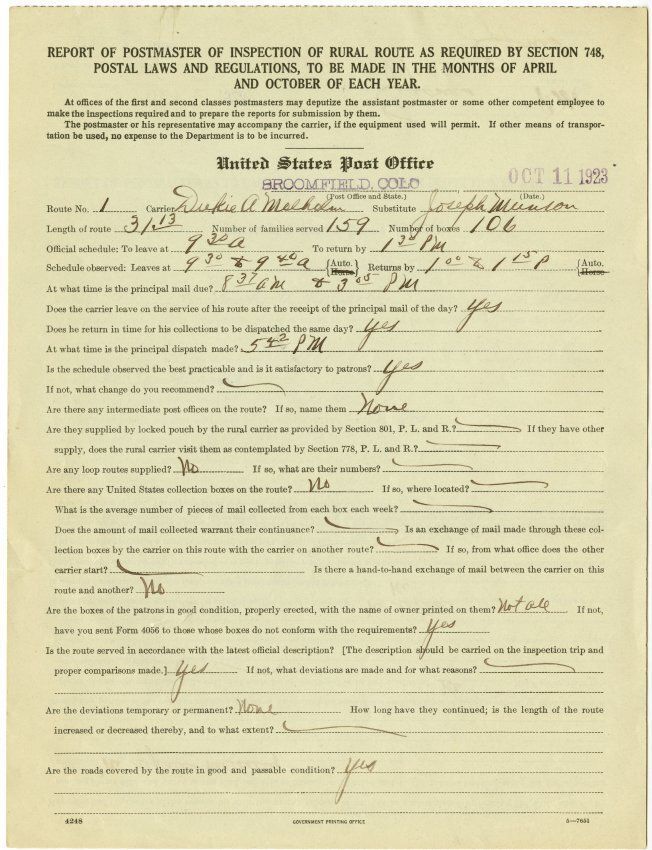 REPORT OF POSTMASTER OF INSPECTION OF RURAL ROUTE AS REQUIRED BY SECTION 748,
POSTAL LAWS AND REGULATIONS, TO BE MADE IN THE MONTHS OF APRIL
AND OCTOBER OF EACH YEAR.
At offices of the first and second classes postmasters may deputize the assistant postmaster or some other competent employee to
make the inspections required and to prepare the reports for submission by them.
The postmaster or his representative may accompany the carrier, if the equipment used will permit. If other means of transpor-
tation be used, no expense to the Department is to be incurred.
United States Post Office
BROOMFIELD, COLO OCT 11 1923
(Post Office and State.) (Date.)
Route No. 1 Carrier A Substitute Joseph Munson
Length of route 31.13 Number of families served 159 Number of boxes 106
Official schedule: To leave at 9 30 a To return by 1 30 PM
Schedule observed: Leaves at 9 30 & 9 40 a {Auto. Horse Returns by 1 00 & 1 15 P {Auto. Horse
At what time is the principal mail due? 8 31 am & 3 05 PM
Does the carrier leave on the service of his route after the receipt of the principal mail of the day? Yes
Does he return in time for his collections to be dispatched the same day? Yes
At what time is the principal dispatch made? 5 42 PM
Is the schedule observed the best practicable and is it satisfactory to patrons? Yes
If not, what change do you recommend?
Are there any intermediate post offices on the route? If so, name them None
Are they supplied by locked pouch by the rural carrier as provided by Section 801, P. L. and R.? If they have other
supply, does the rural carrier visit them as contemplated by Section 778, P. L. and R.?
Are any loop routes supplied? No If so, what are their numbers?
Are there any United States collection boxes on the route? No If so, where located?
What is the average number of pieces of mail collected from each box each week?
Does the amount of mail collected warrant their continuance? Is an exchange of mail made through these col-
lection boxes by the carrier on this route with the carrier on another route? If so, from what office does the other
carrier start? Is there a hand-to-hand exchange of mail between the carrier on this
route and another? No
Are the boxes of the patrons in good condition, properly erected, with the name of owner printed on them? Not all If not,
have you sent Form 4056 to those whose boxes do not conform with the requirements? Yes
Is the route served in accordance with the latest official description? [The description should be carried on the inspection trip and
proper comparisons made.] Yes If not, what deviations are made and for what reasons?
Are the deviations temporary or permanent? None How long have they continued; is the length of the route
increased or decreased thereby, and to what extent?
Are the roads covered by the route in good and passable condition? Yes
4248 GOVERNMENT PRINTING OFFICE 5—7655